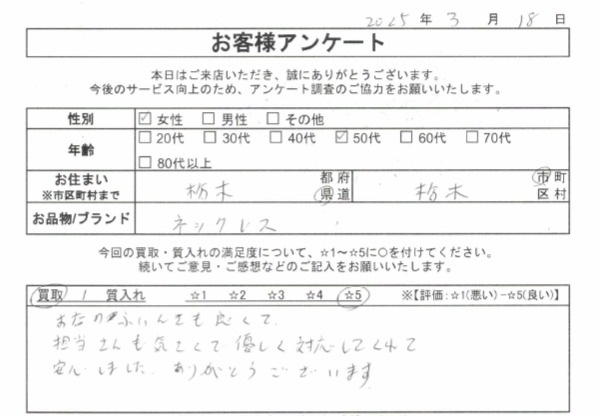 2025年 3月 18日
お客様アンケート
本日はご来店いただき、誠にありがとうございます。
今後のサービス向上のため、アンケート調査のご協力をお願いいたします。
性別 ☑女性 □男性 □その他
年齢 □20代 □30代 □40代 ☑50代 □60代 □70代
□80代以上
お住まい ※市区町村まで 栃木 都府県道 栃木 市町区村
お品物/ブランド ネックレス
今回の買取・質入れの満足度について、☆1～☆5に○を付けてください。
続いてご意見・ご感想などのご記入をお願いいたします。
買取 / 質入れ ☆1 ☆2 ☆3 ☆4 ☆5 ※【評価:☆1(悪い)-☆5(良い)】
お店のふんいきも良くて
担当さんも気さくで優しく対応してくれて
安心しました。ありがとうございます